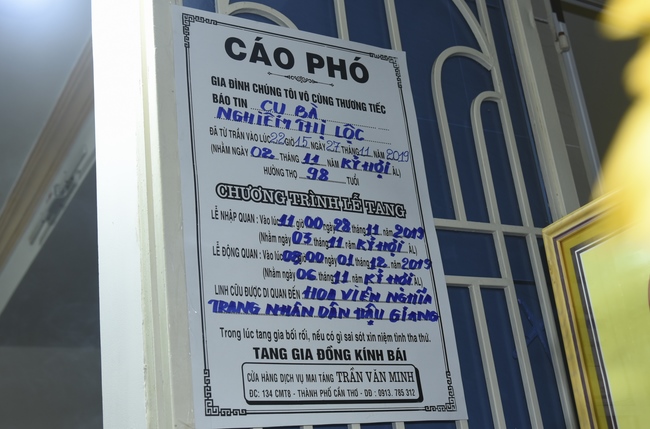 CÁO PHÓ
GIA ĐÌNH CHÚNG TÔI VÔ CÙNG THƯƠNG TIẾC
BÁO TIN CỤ BÀ
NGHIÊM THỊ LỘC
ĐÃ TỪ TRẦN VÀO LÚC 22 GIỜ 15, NGÀY 27 THÁNG 11 NĂM 2019
(NHẰM NGÀY 02 THÁNG 11 NĂM KỶ HỢI ÂL)
HƯỞNG THỌ 98 TUỔI
CHƯƠNG TRÌNH LỄ TANG
LỄ NHẬP QUAN : Vào lúc 11 giờ 00 ngày 28 tháng 11 năm 2019
(Nhằm ngày 03 tháng 11 năm KỶ HỢI ÂL)
LỄ ĐỘNG QUAN : Vào lúc 08 00 ngày 01 tháng 12 năm 2019
(Nhằm ngày 06 tháng 11 năm KỶ HỢI ÂL)
LINH CỮU ĐƯỢC DI QUAN ĐẾN HOA VIÊN NGHĨA
TRANG NHÂN DÂN HẬU GIANG
Trong lúc tang gia bối rối, nếu có gì sai sót xin niệm tình tha thứ.
TANG GIA ĐỒNG KÍNH BÁI
CỬA HÀNG DỊCH VỤ MAI TÁNG TRẦN VĂN MINH
ĐC: 134 CMT8 - THÀNH PHỐ CẦN THƠ - DĐ : 0913. 785 312